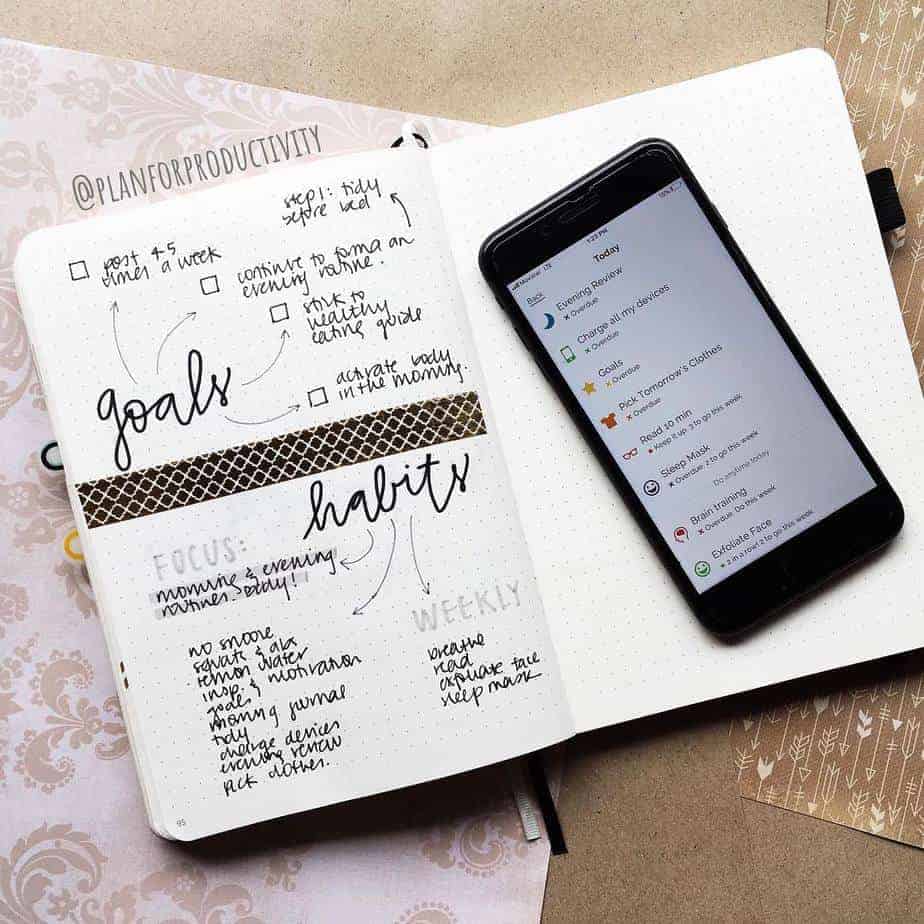 @PLANFORPRODUCTIVITY
step 1: tidy
before bed
post 4-5
times a week
continue to form an
evening routine.
stick to
healthy
eating guide
activate body
in the morning.
goals
habits
FOCUS:
morning & evening
routines
WEEKLY
no snooze
squats & abs
lemon water
insp. & motivation
goals
morning journal
tidy
charge devices
evening review
pick clothes.
breathe
read
exfoliate face
sleep mask
95
Movistar LTE
1:27 PM
Back
Today
Evening Review
× Overdue
Charge all my devices
× Overdue
Goals
× Overdue
Pick Tomorrow's Clothes
× Overdue
Read 10 min
★ Keep it up. 3 to go this week
Sleep Mask
× Overdue. 2 to go this week
Do anytime today
Brain training
× Overdue. Do this week
Exfoliate Face
★ 2 in a row! 2 to go this week